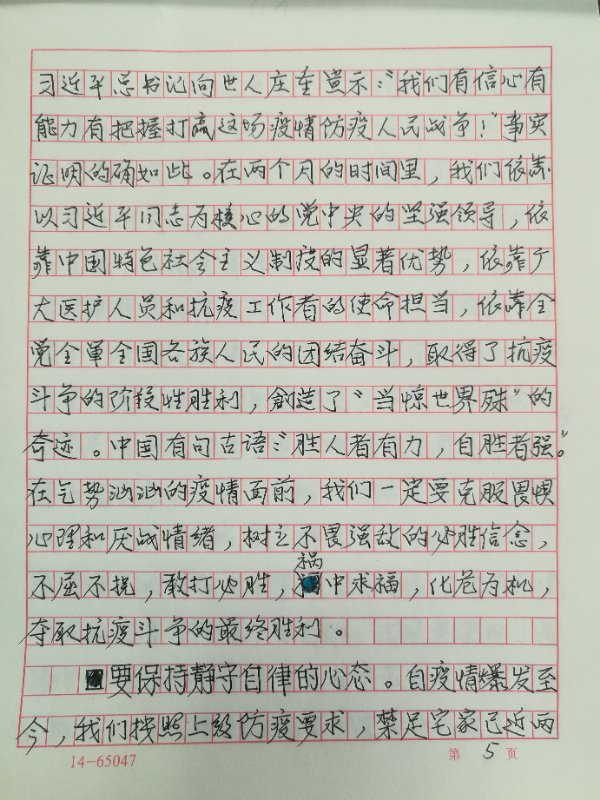 习近平总书记向世人庄重宣示:“我们有信心有
能力有把握打赢这场疫情防疫人民战争!”事实
证明的确如此。在两个月的时间里，我们依靠
以习近平同志为核心的党中央的坚强领导，依
靠中国特色社会主义制度的显著优势，依靠广
大医护人员和抗疫工作者的使命担当，依靠全
党全軍全国各族人民的团结奋斗，取得了抗疫
斗争的阶段性胜利，創造了“当惊世界殊”的
奇迹。中国有句古语:“胜人者有力，自胜者强。”
在气势汹汹的疫情面前，我们一定要克服畏惧
心理和厌战情绪，树立不畏强敌的必胜信念，
不屈不挠，敢打必胜，祸中求福，化危为机，
夺取抗疫斗争的最终胜利。
要保持静守自律的心态。自疫情爆发至
今，我们按照上级防疫要求，禁足宅家已近两
14-65047
第 5 页